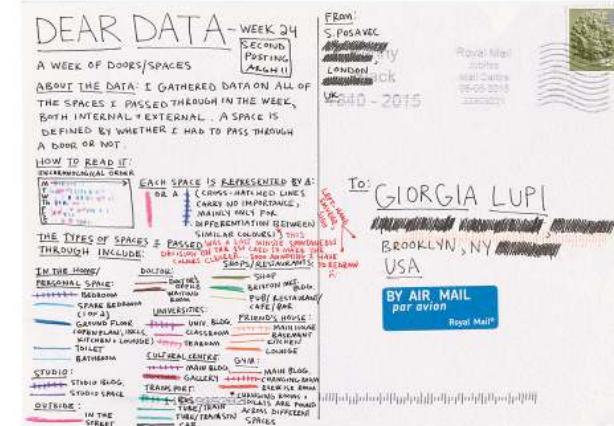 DEAR DATA - WEEK 24
SECOND
POSTING
ARGH!!
A WEEK OF DOORS/SPACES
ABOUT THE DATA: I GATHERED DATA ON ALL OF
THE SPACES I PASSED THROUGH IN THE WEEK,
BOTH INTERNAL + EXTERNAL. A SPACE IS
DEFINED BY WHETHER I HAD TO PASS THROUGH
A DOOR OR NOT.
HOW TO READ IT:
IN CHRONOLOGICAL ORDER
M
T
W
TH
F
S
S
EACH SPACE IS REPRESENTED BY A:
OR A
(CROSS-HATCHED LINES
CARRY NO IMPORTANCE,
MAINLY ONLY FOR
DIFFERENTIATION BETWEEN
SIMILAR COLOURS)
THIS
WAS A LAST MINUTE SPONTANEOUS
DECISION
TO MAKE THE
COLORS CLEARER
I HAVE
TO REDRAW
THE TYPES OF SPACES I PASSED
THROUGH INCLUDE:
IN THE HOME/
PERSONAL SPACE:
BEDROOM
SPARE BEDROOM
(1 OF 2)
GROUND FLOOR
(OPENPLAN, INCLS.
KITCHEN + LOUNGE)
TOILET
BATHROOM
STUDIO:
STUDIO BLDG.
STUDIO SPACE
OUTSIDE:
IN THE
STREET
DOCTOR:
DOCTOR'S
OFFICE
WAITING
ROOM
UNIVERSITIES:
UNIV. BLDG.
CLASSROOM
TEAROOM
CULTURAL CENTRE:
MAIN BLDG.
GALLERY
TRANSPORT:
BUS
TUBE/TRAIN
TUBE/TRAIN STN
CAR
SHOPS/RESTAURANTS:
SHOP
BRIXTON MKT.
BLDG.
PUB/RESTAURANT/
CAFE/BAR
FRIEND'S HOUSE:
MAIN HOUSE
BASEMENT
KITCHEN
LOUNGE
GYM:
MAIN BLDG.
CHANGING ROOM
EXERCISE ROOM
* CHANGING ROOMS +
TOILETS ARE FOUND
ACROSS DIFFERENT
SPACES
FROM:
S. POSAVEC
LONDON
UK
1840 - 2015
Royal Mail
Mail Centre
TO: GIORGIA LUPI
BROOKLYN, NY
USA
BY AIR MAIL
par avion
Royal Mail®